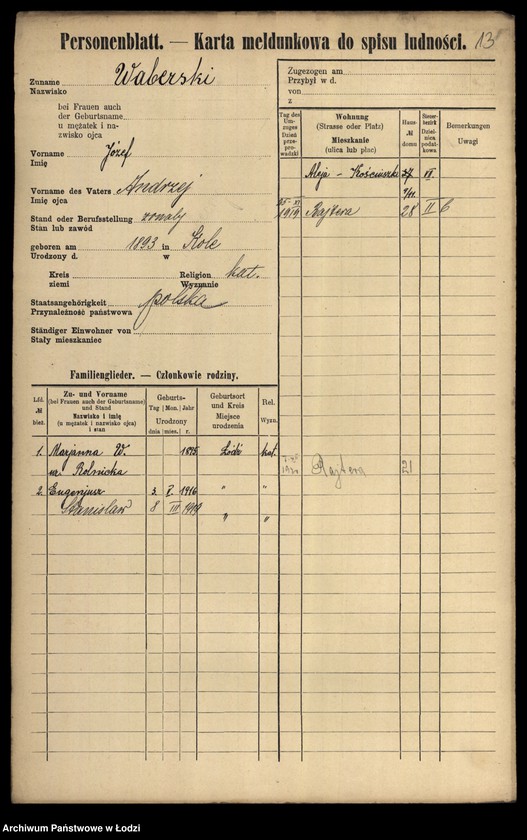 Personenblatt. — Karta meldunkowa do spisu ludności. 13
Zuname Waberski
Nazwisko
bei Frauen auch
der Geburtsname
u mężatek i na-
zwisko ojca
Vorname Józef
Imię
Vorname des Vaters Andrzej
Imię ojca
Stand oder Berufsstellung
Stan lub zawód
geboren am 1893 in Kole
Urodzony d. w
Kreis Religion kat.
ziemi Wyznanie
Staatsangehörigkeit polska
Przynależność państwowa
Ständiger Einwohner von
Stały mieszkaniec
Zugezogen am
Przybył w d.
von
z
Tag des Um-
zuges
Dzień
przepro-
wadzki
Wohnung
(Strasse oder Platz)
Mieszkanie
(ulica lub plac)
Haus-
№
domu
Steuer-
bezirk
Dziel-
nica po-
datkowa
Bemerkungen
Uwagi
Aleja - Kościuszki VI
1919 Rajtera 28 II 6
Rajtera 21
Familienglieder. — Członkowie rodziny.
Lfd.
№
bież.
Zu- und Vorname
(bei Frauen auch der Geburtsname)
und Stand
Nazwisko i imię
(u mężatek i nazwisko ojca)
i stan
Geburts-
Tag Mon. Jahr
Urodzony
dnia mies. r.
Geburtsort
und Kreis
Miejsce
urodzenia
Rel.
Wyzn.
1. Marjanna W. 1895 Łódź kat.
Rolnicka
2. Eugenjusz 3. I. 1916 " "
Stanisław 8 III 1919 " "
Archiwum Państwowe w Łodzi